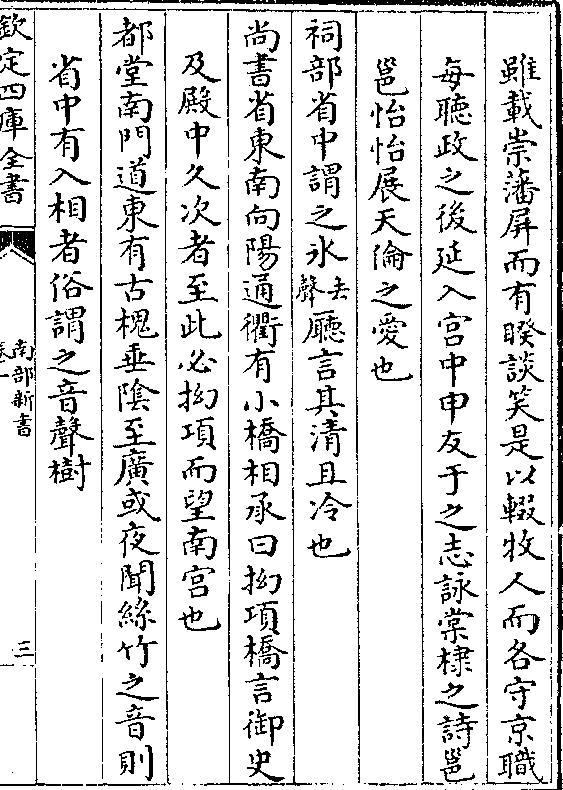 雖載崇藩屏而有暌談笑是以輟牧人而各守京職
每聽政之後延入宫中申友于之志詠棠棣之詩邕
邕怡怡展天倫之愛也
祠部省中謂之氷去聲廳言其清且冷也
尚書省東南向陽通衢有小橋相承曰拗項橋言御史
及殿中久次者至此必拗項而望南宫也
都堂南門道東有古槐垂陰至廣或夜聞絲竹之音則
省中有入相者俗謂之音聲樹
欽定四庫全書
南部新書
卷一
三